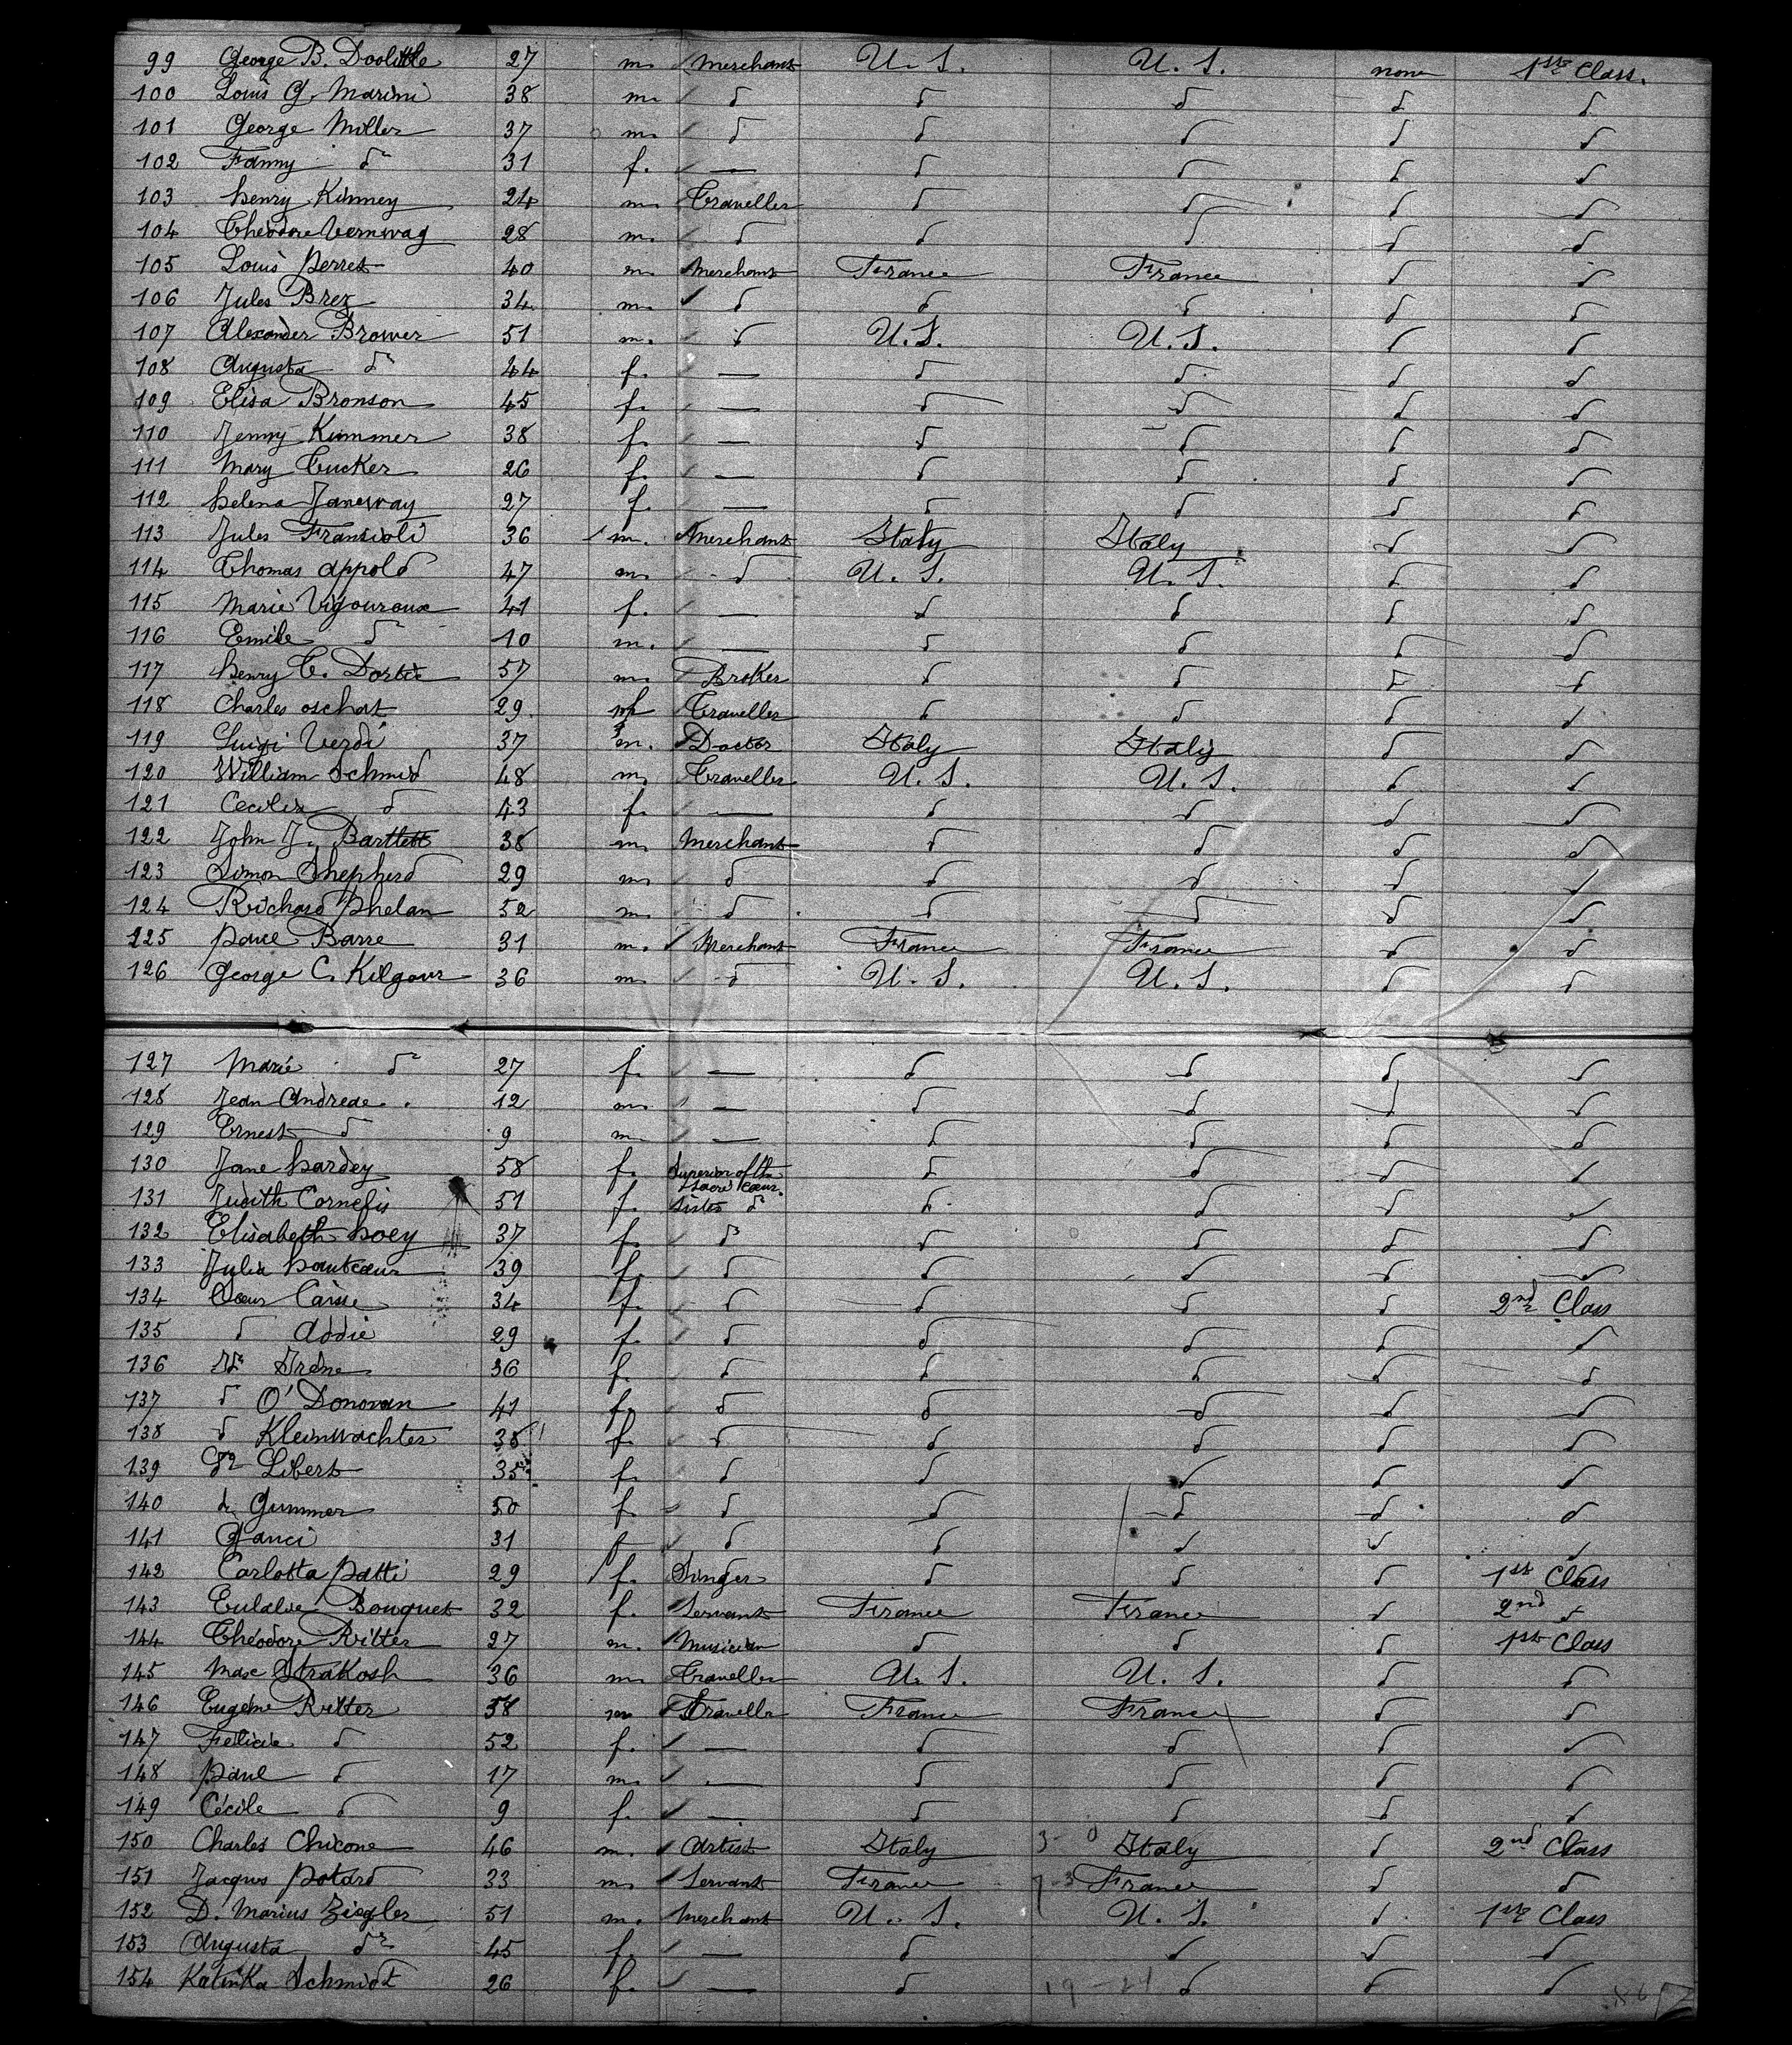 99 George B. Doolittle 27 m. Merchant U. S. U. S. none 1st Class.
100 Louis G. Marini 38 m. d d d d d
101 George Miller 37 m. d d d d d
102 Fanny do 31 f. — d d d d
103 henry Kinney 24 m. Traveller d d d d
104 Théodore Vernwag 28 m. d d d d d
105 Louis Perret 40 m. Merchant France France d d
106 Jules Brez 34 m. d d d d d
107 Alexander Brower 51 m. d U. S. U. S. d d
108 Augusta do 44 f. — d d d d
109 Elisa Bronson 45 f. — d d d d
110 Jenny Kummer 38 f. — d d d d
111 Mary Tucker 26 f. — d d d d
112 helena Janeway 27 f. — d d d d
113 Jules Fransioli 36 m. Merchant Italy Italy d d
114 Thomas Appold 47 m. d U. S. U. S. d d
115 Marie Vigouroux 41 f. — d d d d
116 Emile do 10 m. — d d d d
117 henry T. 57 m. Broker d d d d
118 Charles oschat 29 m Traveller d d d d
119 Luigi Verdi 37 m. Doctor Italy Italy d d
120 William Schmid 48 m. Traveller U. S. U. S. d d
121 Cecilia d 43 f. — d d d d
122 John J. Bartlett 38 m. Merchant d d d d
123 Simon Shepherd 29 m. d d d d d
124 Richard Phelan 52 m. d d d d d
125 Paul Barre 31 m. Merchant France France d d
126 George C. Kilgour 36 m. d U. S. U. S. d d
127 Marie do 27 f. — d d d d
128 Jean Andreae. 12 m. — d d d d
129 Ernest d 9 m. — d d d d
130 Jane hardey 58 f. Superior of the Sacré Coeur. d d d d
131 Judith Cornefis 51 f. Sister do d d d d
132 Elisabeth hoey 37 f. do d d d d
133 Julia hautcoeur 39 f. d d d d d
134 Soeur 34 f. d d d d 2nd Class
135 d Addie 29 f. d d d d d
136 Id Irène 36 f. d d d d d
137 d O'Donovan 41 f. d d d d d
138 d Kleinwachter 38 f. d d d d d
139 do Libert 35 f. d d d d d
140 d Gummer 50 f. d d d d d
141 Ganci 31 f d d d d d
142 Carlotta Patti 29 f. Singer d d d 1st Class
143 Eulalie Bouquet 32 f. Servant France France d 2nd d
144 Théodore Ritter 27 m. Musician d d d 1st Class
145 Max Strakosh 36 m. Traveller U. S. U. S. d d
146 Eugène Ritter 58 m Traveller France France d d
147 Félicie d 52 f. — d d d d
148 Paul d 17 m. — d d d d
149 Cécile d 9 f. — d d d d
150 Charles Chicone 46 m. Artist Italy Italy d 2nd Class
151 Jacques Potard 33 m. Servant France France d d
152 D. Marius Ziegler 51 m. Merchant U. S. U. S. d 1st Class
153 Augusta do 45 f. — d d d d
154 Katinka Schmidt 26 f. — d d d d